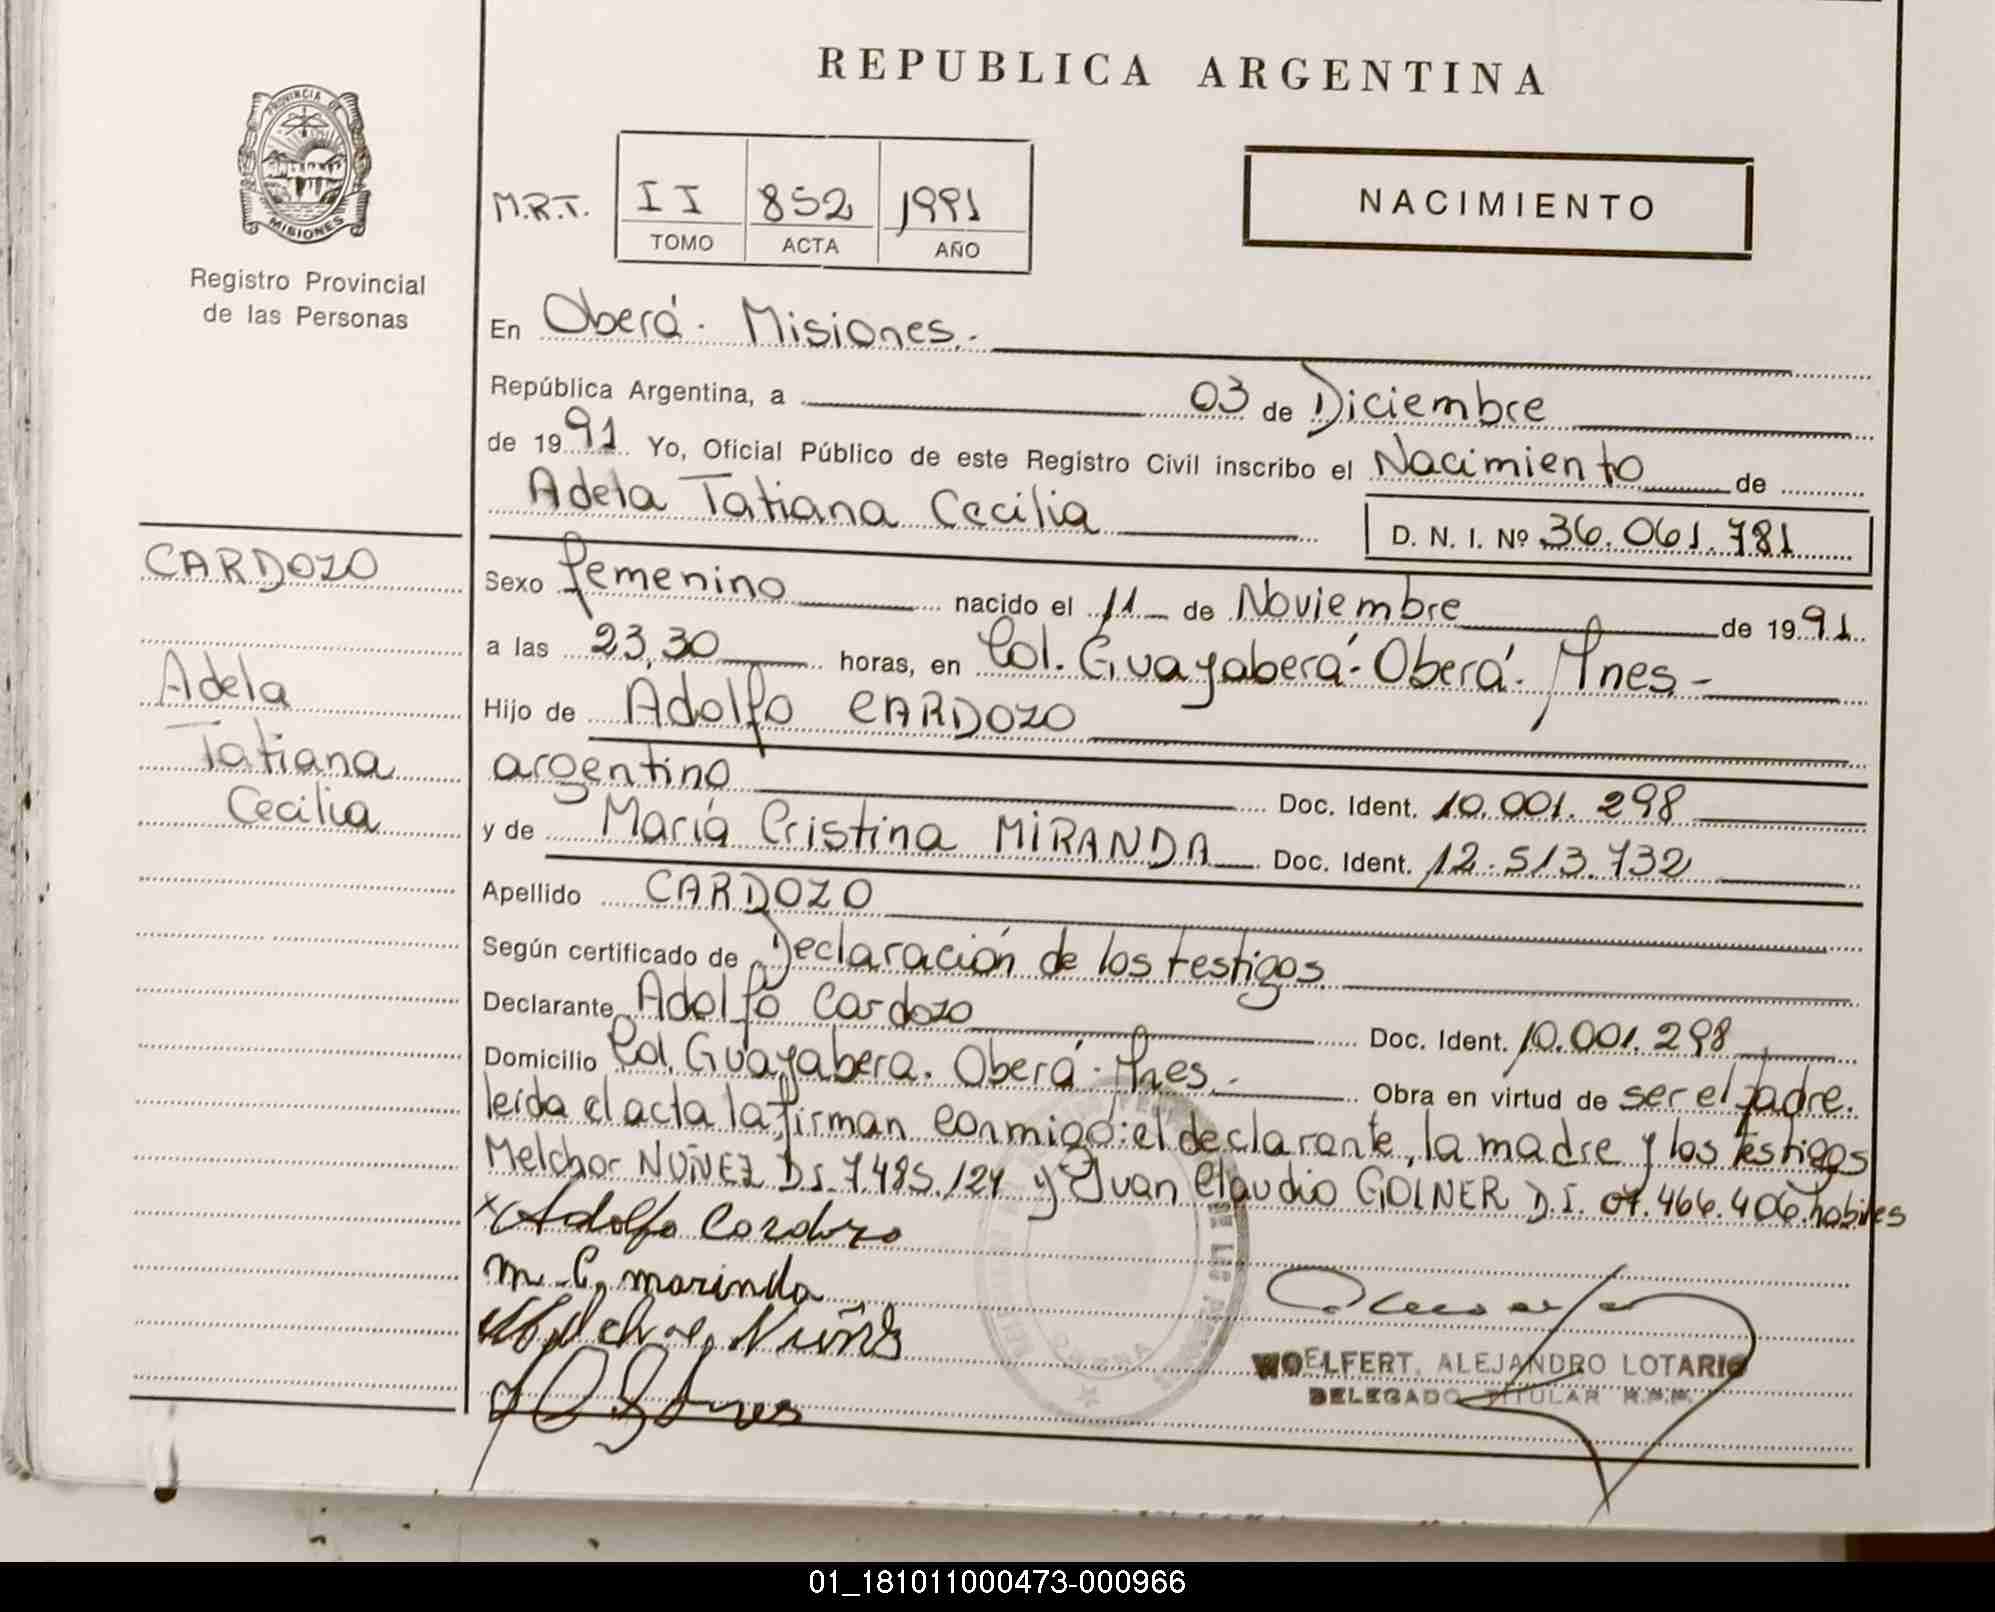 REPUBLICA ARGENTINA
PROVINCIA DE
MISIONES
Registro Provincial
de las Personas
M.R.T. II 852 1991
TOMO ACTA AÑO
NACIMIENTO
En Oberá - Misiones.-
República Argentina, a 03 de Diciembre
de 1991 Yo, Oficial Público de este Registro Civil inscribo el Nacimiento de
Adela Tatiana Cecilia
D. N. I. Nº 36.061.781
CARDOZO
Adela
Tatiana
Cecilia
Sexo femenino nacido el 11 de Noviembre de 1991
a las 23,30 horas, en Col. Guayaberá - Oberá - Mnes -
Hijo de Adolfo CARDOZO
argentino Doc. Ident. 10.001.298
y de María Cristina MIRANDA Doc. Ident. 12.513.732
Apellido CARDOZO
Según certificado de Declaración de los testigos
Declarante Adolfo Cardozo Doc. Ident. 10.001.298
Domicilio Col. Guayabera. Oberá - Mnes.- Obra en virtud de ser el padre.
leída el acta la firman conmigo: el declarante, la madre y los testigos
Melchor NUÑEZ D.I. 7.485.124 y Juan Claudio GOLNER D.I. 07.466.406. habiles
x Adolfo Cordozo
m. C. marinda
Melchor Nuñez
WOELFERT, ALEJANDRO LOTARIO
DELEGADO TITULAR R.P.P.
01_181011000473-000966